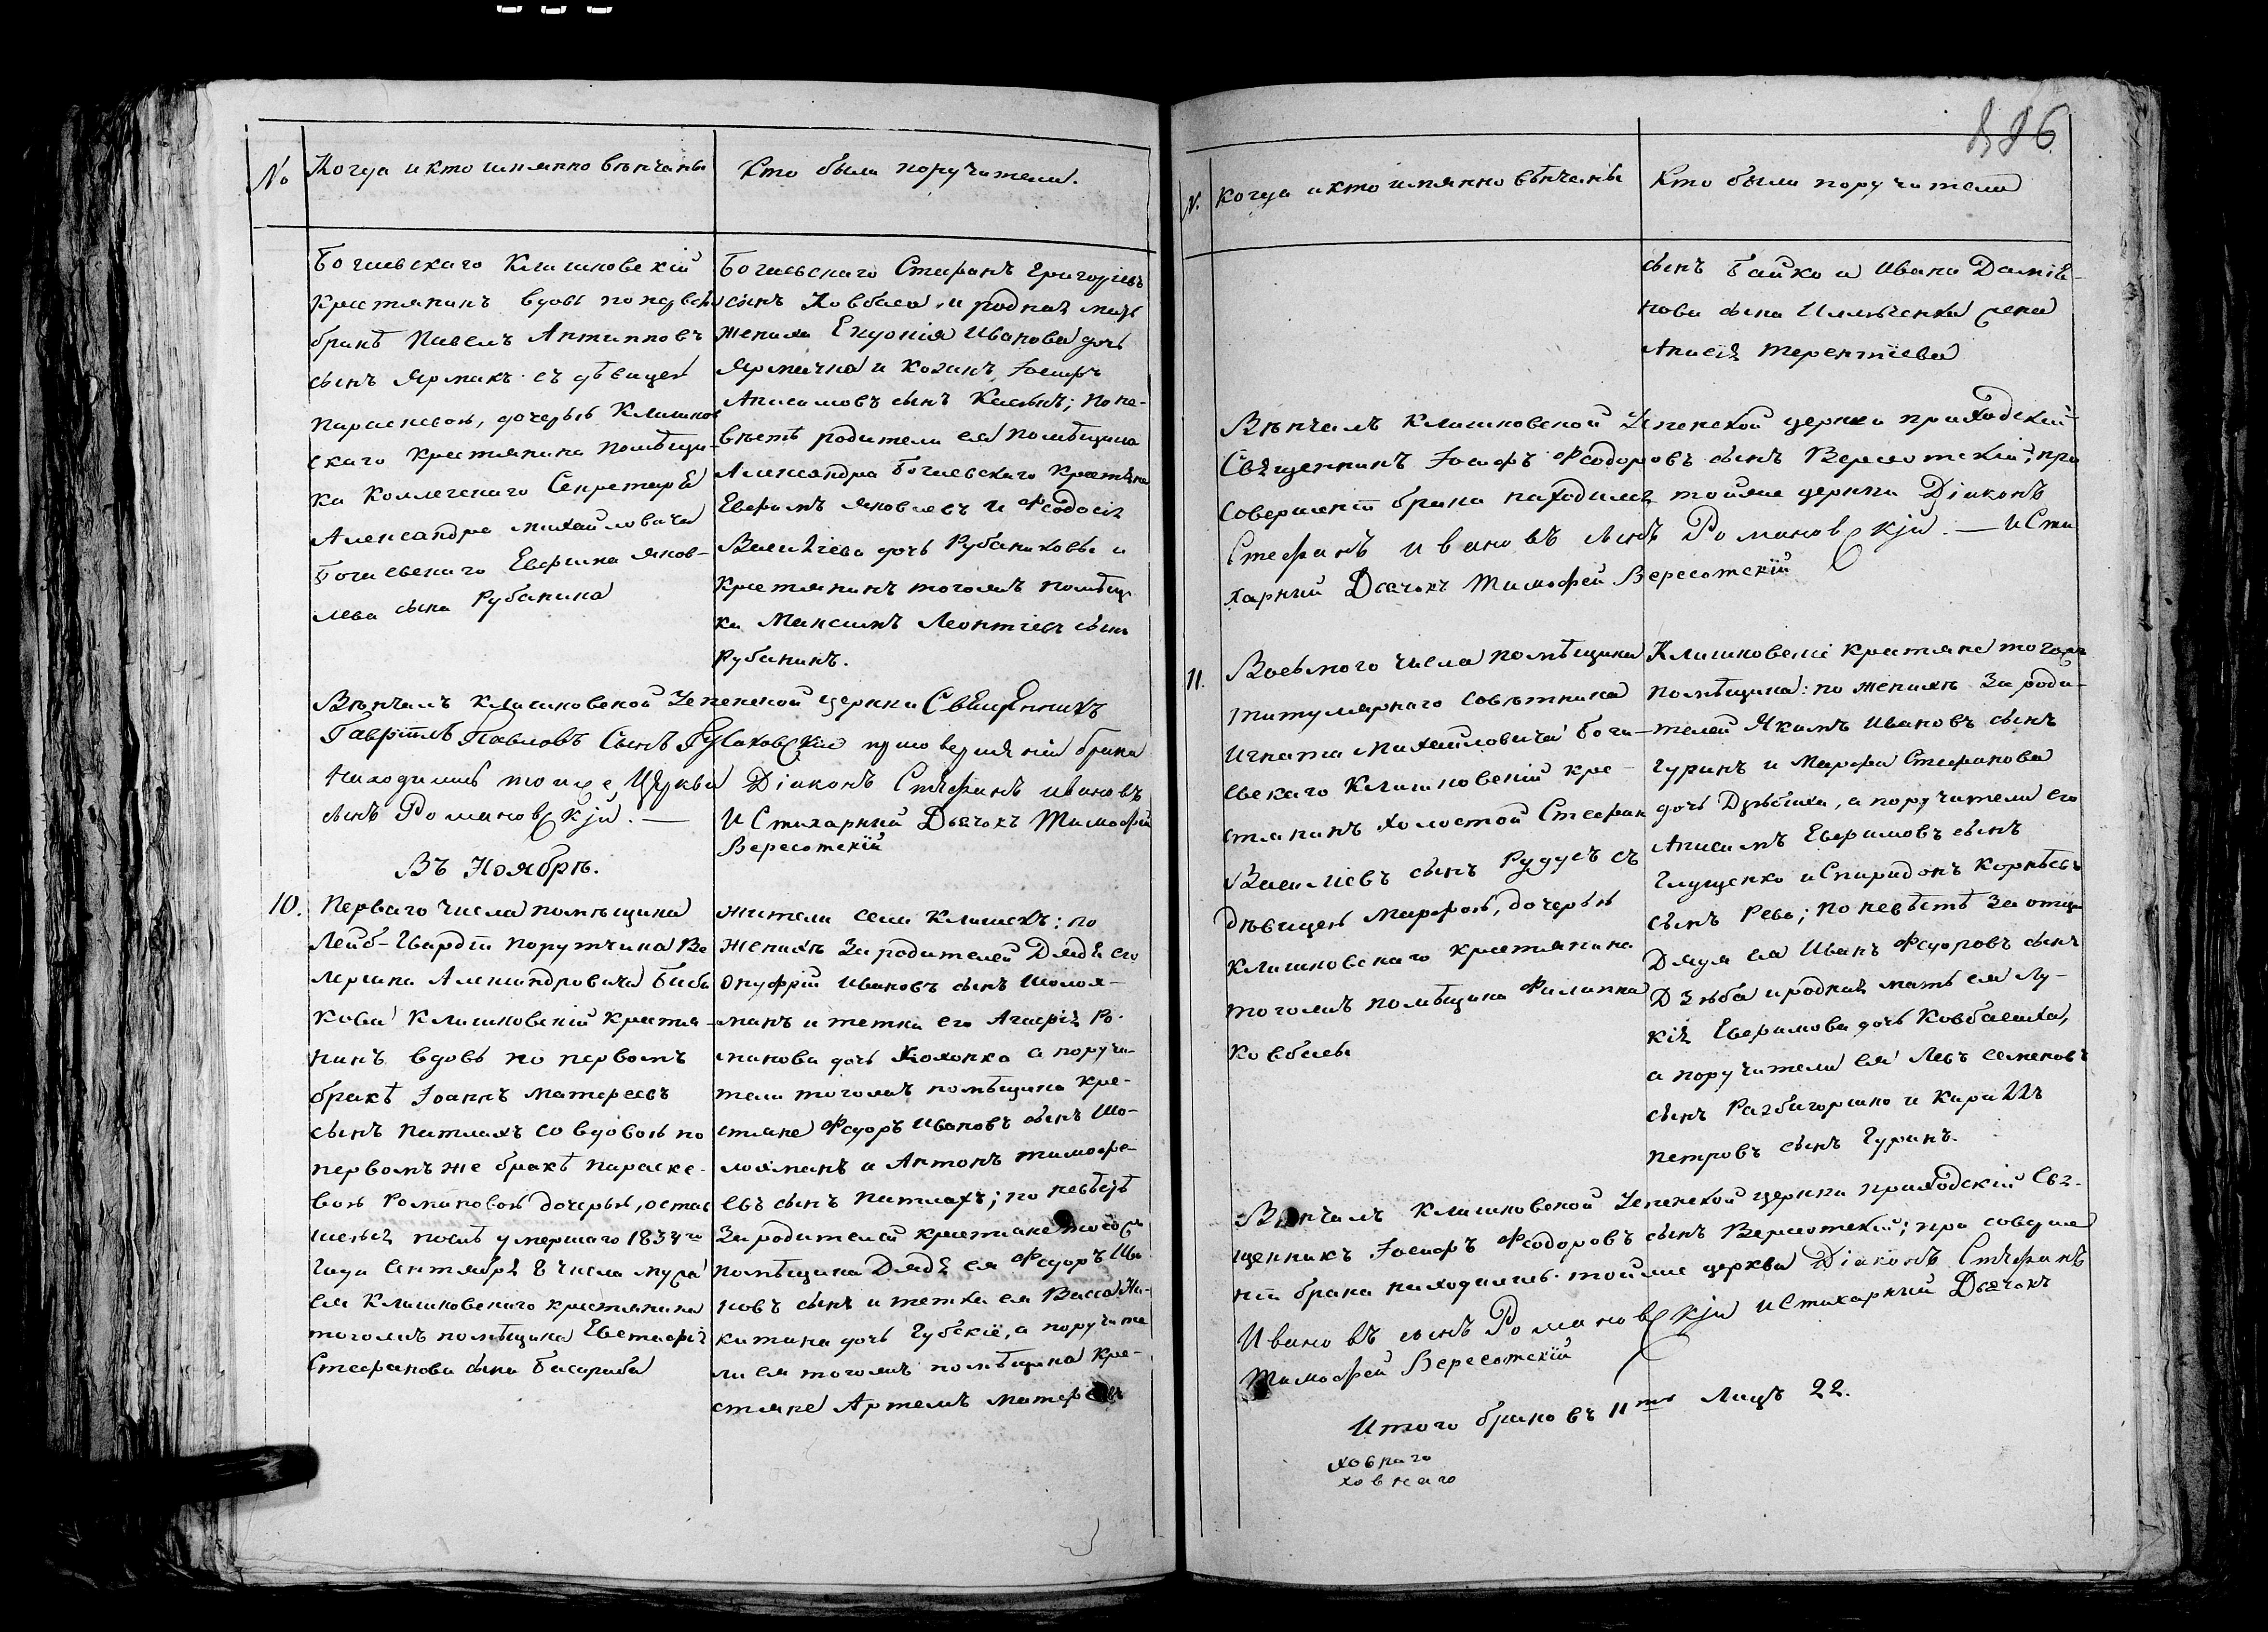 №
Когда и кто имянно вѣнчаны
Кто были поручители.
Богаевскаго Клишковскій
крестянинъ вдовъ по первом
бракѣ Павелъ Антиповъ
сынъ Ярмакъ съ дѣвицею
Параскевою, дочерью Клишков
скаго крестянина помѣщи-
ка Коллежскаго Секретаря
Александра Михайловича
Богаевскаго Евфима Яков-
лева сына Рубаника
Богаевскаго Стефанъ Григорієвъ
сынъ Ковбаса, и родная мать
жениха Евдокія Иванова дочь
Ярмачка и Козинъ Іосифъ
Анисимовъ сынъ; по не-
вѣстѣ родители ея помѣщика
Александра Богаевскаго крестяне
Евфимъ Яковлевъ и Феодосія
Василіева дочь Рубаниковы и
крестянинъ тогожъ помѣщи
ка Максимъ Леонтіевъ сынъ
Рубаникъ.
Вѣнчалъ Клишковской Успенской церкви Священникъ
Гавріилъ Павловъ Сынъ при соверше нія брака
Находились тоиже Церкви Діаконъ Стефанъ Ивановъ
сынъ Романовскій. — И Стихарный Дьячокъ Тимофей
Вересотскій
Въ Ноябрѣ.
10.
Перваго числа помѣщика
Лейб-Гвардіи Порутчика Ва
леріана Александровича Биби
кова Клишковскій крестя-
нинъ вдовъ по первомъ
бракѣ Іоаннъ Матфеевъ
сынъ Патлахъ со вдовою по
первомъ же бракѣ Параске-
вою Романовою дочерью, остав
шеюся послѣ умершаго 1834го
Года Сентября 8 числа мужа
ея Клишковскаго крестянина
тогожъ помѣщика Евстафія
Стефанова сына Басараба
жители села Клишекъ: по
женихѣ за родителей Дядя его
Онуфрій Ивановъ сынъ Шолоя-
манъ и тетка его Агафія Ро-
манова дочь Холопка а поручи-
тели тогожъ помѣщика кре-
стяне Федоръ Ивановъ сынъ Шо-
лояманъ и Антонъ Тимофе-
евъ сынъ Патлахъ; по невѣстѣ
За родителей крестяне тогожъ
помѣщика Дядя ея Федоръ Ива
новъ сынъ и тетка ея Васса Ни-
китина дочь Губскіе, а поручите
ли ея тогожъ помѣщика кре-
стяне Артемъ Матфеевъ
№.
Когда и кто имянно вѣнчаны
Кто были поручители
сынъ Байко и Ивана Даміа-
нова сына Ильченка жена
Анисія Терентіева
Вѣнчалъ Клишковской Успенской церкви приходскій
Священникъ Іосифъ Феодоровъ сынъ Вересотскій; при
совершеніи брака находились тойже церкви Діаконъ
Стефанъ Ивановъ сынъ Романовскій. — И Сти
харный Дьячокъ Тимофей Вересотскій
11.
Восьмого числа помѣщика
титулярнаго совѣтника
Игната Михайловича Бога-
евскаго Клишковскій кре-
стянинъ холостой Стефан
Василіевъ сынъ Рудусъ съ
дѣвицею Марфою, дочерью
Клишковскаго крестянина
тогожъ помѣщика Филиппа
Ковбасы
Клишковскіе крестяне тогожъ
помѣщика: по женихѣ за роди-
телей Якимъ Ивановъ сынъ
Гуринъ и Марфа Стефанова
дочь, а поручители его
Анисимъ Евфимовъ сынъ
Глущенко и Спиридонъ Корнѣевъ
сынъ Рева; по невѣстѣ за отца
Дядя ея Иванъ Федоровъ сынъ
Дзюба и родная мать ея Лу-
кія Евфимова дочь Ковбасиха,
а поручители ея Левъ Семеновъ
сынъ Разбигоршко и Кириллъ
Петровъ сынъ Гуринъ.
Вѣнчалъ Клишковской Успенской церкви приходскій Свя-
щенникъ Іосифъ Феодоровъ сынъ Вересотскій; при соверше
ніи брака находились тойже церкви Діаконъ Стефанъ
Ивановъ сынъ Романовскій и Стихарный Дьячокъ
Тимофей Вересотскій
Итого браковъ 11ть Лицъ 22.